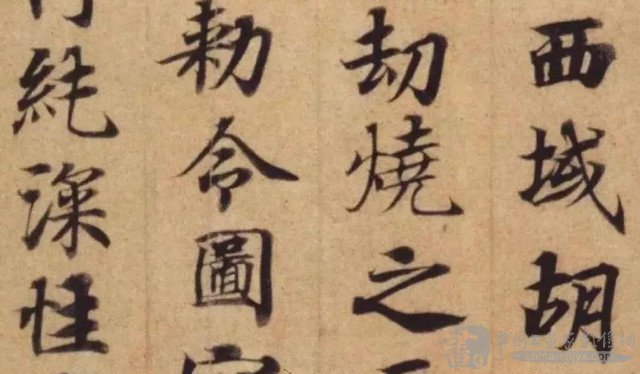 西域胡
劫燒之
勅令圖
純深性